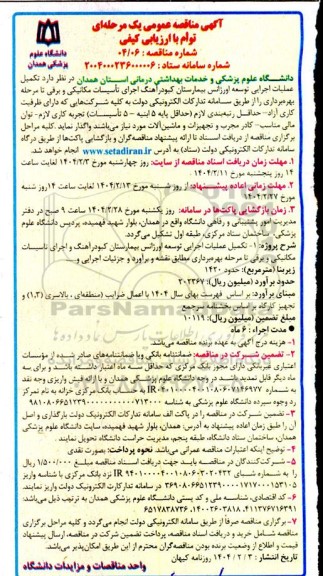 آگهی مناقصه عمومی یک مرحله‌ای
توأم با ارزیابی کیفی
شماره مناقصه : ۴/۰۶
شماره سامانه ستاد : ۲۰۰۴۰۰۰۲۳۶۰۰۰۰۰۶
دانشگاه علوم
پزشکی همدان
دانشگاه علوم پزشکی و خدمات بهداشتی درمانی استان همدان در نظر دارد تکمیل
عملیات اجرایی توسعه اورژانس بیمارستان کبودرآهنگ اجرای تأسیسات مکانیکی و برقی تا مرحله
بهره‌برداری را از طریق سامانه تدارکات الکترونیکی دولت به کلیه شرکت‌هایی که دارای ظرفیت
کاری آزاد- حداقل رتبه‌بندی لازم (حداقل پایه ۵ ابنیه - ۵ تأسیسات) تجربه کاری لازم- توان
مالی مناسب- کادر مجرب و تجهیزات و ماشین‌آلات مورد نیاز می‌باشند واگذار نماید. کلیه مراحل
برگزاری مناقصه از دریافت اسناد تا ارائه پیشنهاد مناقصه‌گران و بازگشایی پاکت‌ها از طریق درگاه
سامانه تدارکات الکترونیکی دولت (ستاد) به آدرس www.setadiran.ir انجام خواهد شد.
۱. مهلت زمان دریافت اسناد مناقصه از سایت: روز چهارشنبه مورخ ۱۴۰۴/۲/۳ لغایت ساعت
۱۴ روز پنجشنبه مورخ ۱۴۰۴/۲/۱۱
۲. مهلت زمانی اماده پیشنهاد: از روز شنبه مورخ ۱۴۰۴/۲/۱۳ لغایت ساعت ۱۴ روز شنبه
مورخ ۱۴۰۴/۲/۲۷
۳. زمان بازگشایی پاکت‌ها در سامانه: روز یکشنبه مورخ ۱۴۰۴/۲/۲۸ ساعت ۹ صبح در دفتر
مدیریت امور پشتیبانی و رفاهی دانشگاه واقع در همدان، بلوار شهید فهمیده، پردیس دانشگاه علوم
پزشکی، ساختمان ستاد مرکزی، طبقه اول تشکیل می‌گردد
شرح پروژه: ۱- تکمیل عملیات اجرایی توسعه اورژانس بیمارستان کبودرآهنگ و اجرای تأسیسات
مکانیکی و برقی تا مرحله بهره‌برداری مطابق نقشه و برآورد و جزئیات اجرایی و
زیربنا (مترمربع): حدود ۱۴۲۰
حدود برآورد (میلیون ریال):
مبنای برآورد: بر اساس فهرست بهای سال ۱۴۰۴ با اعمال ضرایب (منطقه‌ای ، بالاسری (۱,۳) و
تجهیز کارگاه
مبلغ تضمین (میلیون ریال): ۱۰۱۱۹
• مدت اجراء : ۶ ماه
۱- هزینه درج آگهی به عهده برنده مناقصه می‌باشد
۲- تضمین شرکت در مناقصه: ضمانتنامه بانکی ویا ضمانتنامه‌های صادر شده از مؤسسات
اعتباری غیربانکی دارای مجوز بانک مرکزی که حداقل سه ماه اعتبار داشته باشند و برای سه
ماه دیگر قابل تمدید باشند، در وجه دانشگاه علوم پزشکی همدان و یا ارائه فیش واریزی وجه نقد
۳- تضمین شرکت در مناقصه را در پاکت الف سامانه تدارکات الکترونیک دولت بارگذاری و اصل
آن را طبق زمان اماده پیشنهاد به آدرس: همدان، بلوار شهید فهمیده، سایت دانشگاه علوم پزشکی
همدان، ساختمان ستاد دانشگاه، طبقه پنجم، مدیریت حراست دانشگاه تحویل نمایند
۴- توضیح اینکه اعتبارات مناقصه عمرانی می‌باشد. نحوه پرداخت: بصورت نقدی
۵- شرکت‌کنندگان در مناقصه باید جهت دریافت اسناد مناقصه مبلغ ۱/۵۰۰/۰۰۰ ریال
۶- کد اقتصادی، شناسه ملی و کد پستی دانشگاه علوم پزشکی همدان به ترتیب ذیل می‌باشد:
۷- برگزاری مناقصه صرفاً از طریق سامانه الکترونیکی دولت انجام می‌گردد و کلیه مراحل برگزاری
مناقصه شامل خرید و دریافت اسناد مناقصه، پرداخت تضمین شرکت در مناقصه، ارسال پیشنهاد
قیمت و اطلاع از وضعیت برنده بودن مناقصه‌گران محترم از این طریق امکان‌پذیر می‌باشد.
تاریخ انتشار : ۱۴۰۴/۲/۳ روزنامه کیهان
واحد مناقصات و مزایدات دانشگاه